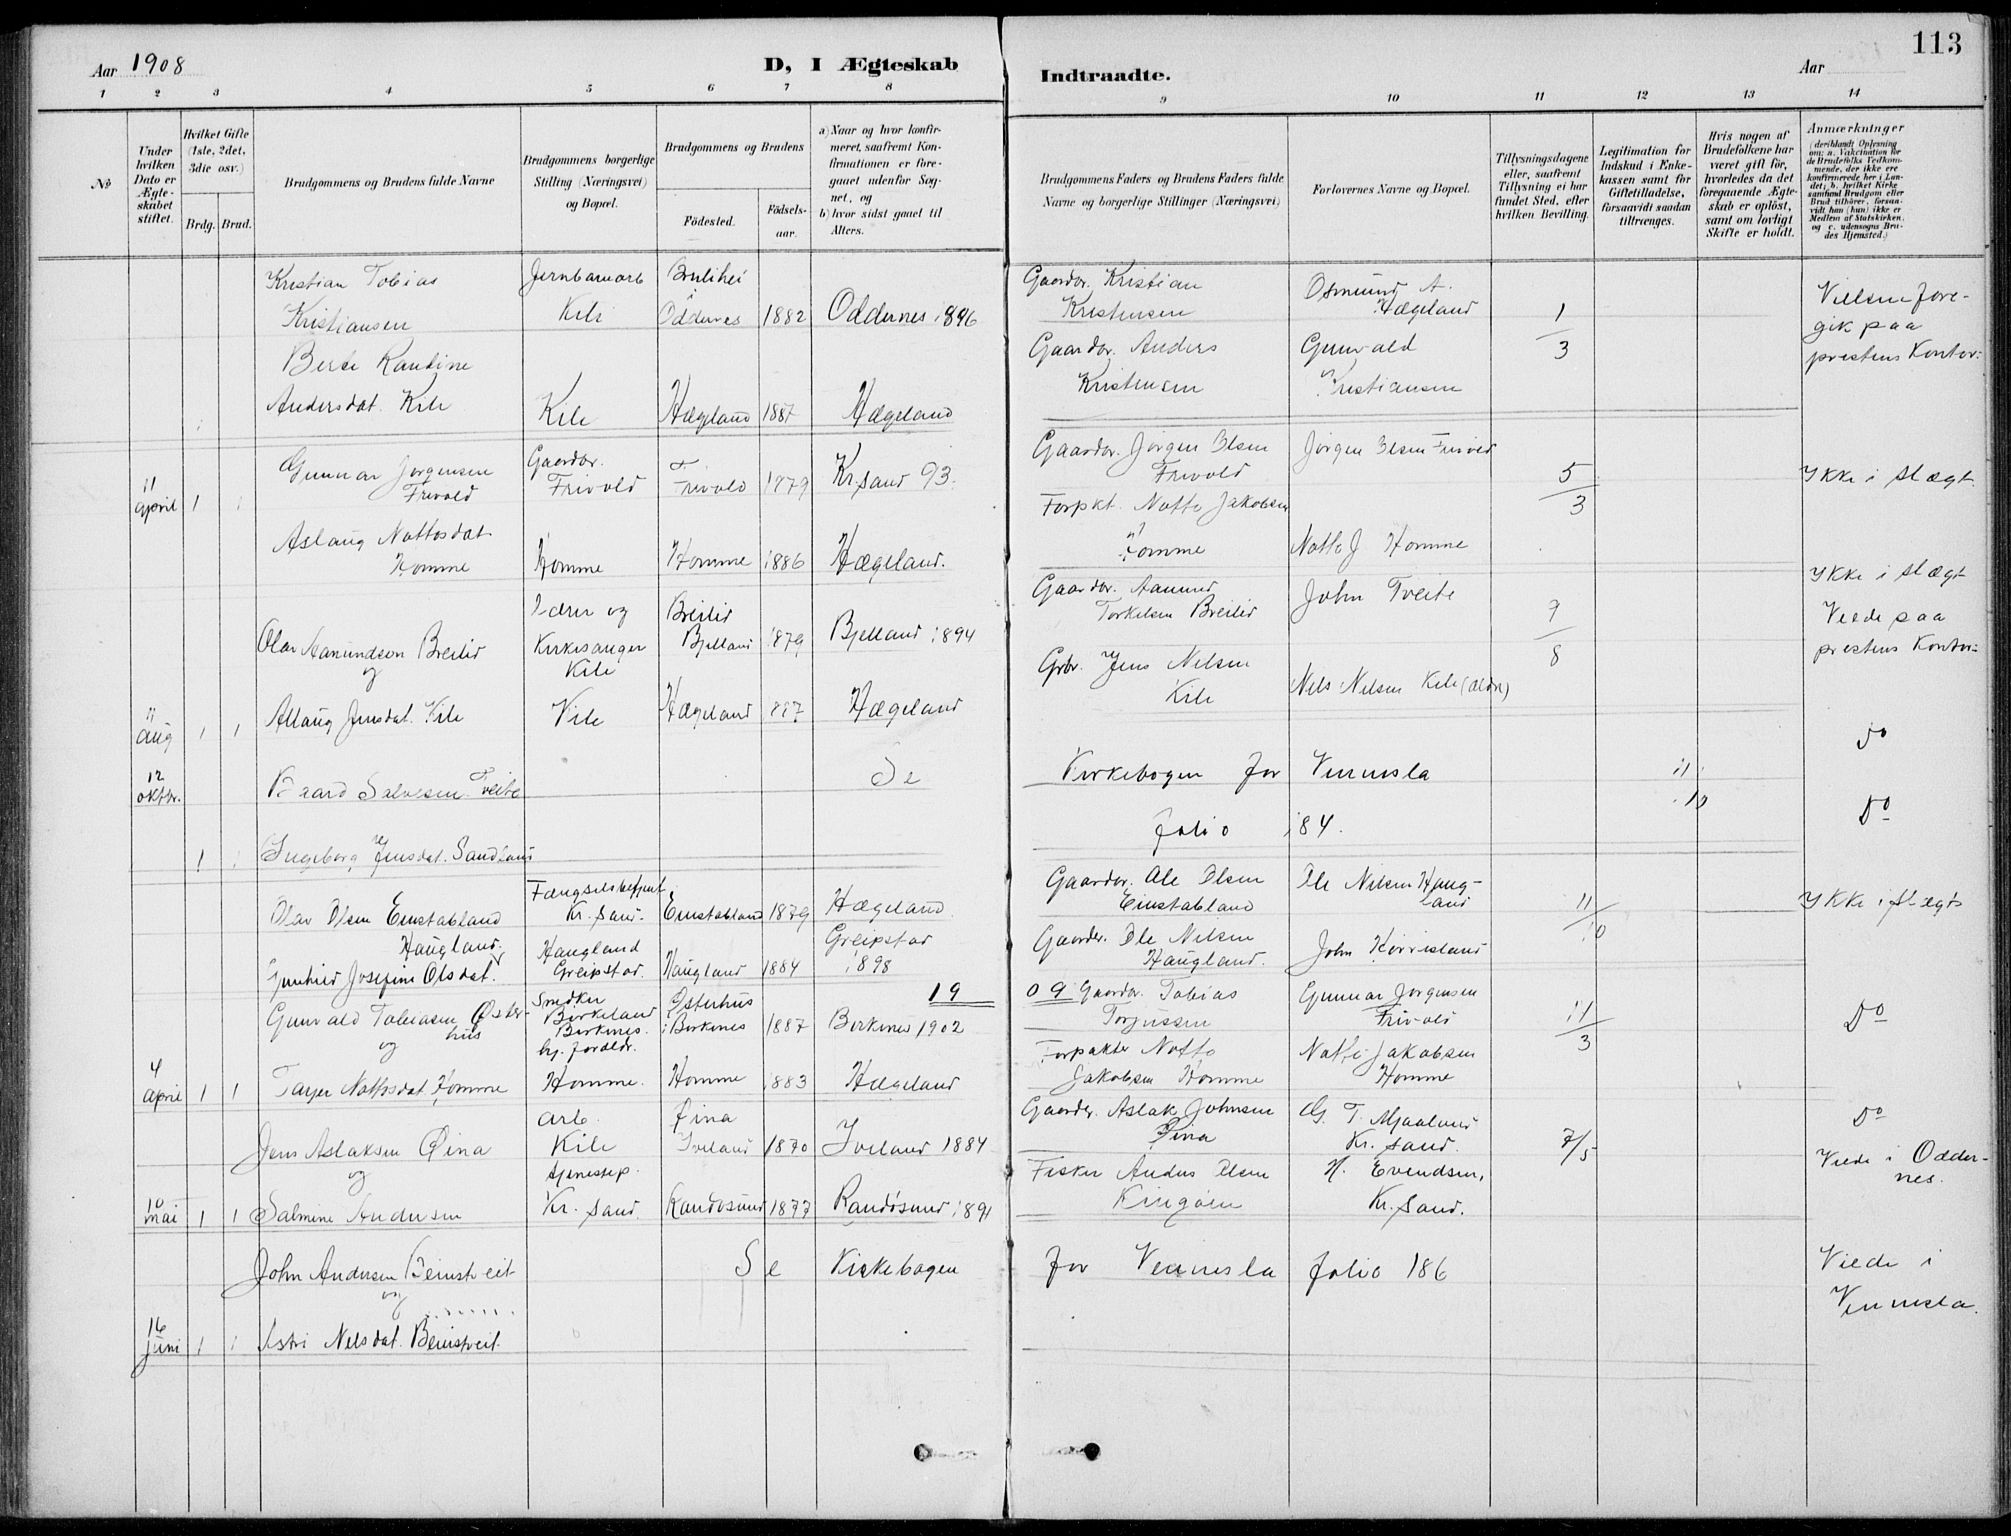 113
Aar 1908
D, I Ægteskab
Indtraadte.
Aar
1 2 3 4 5 6 7 8 9 10 11 12 13 14
No
Under hvilken Dato er Ægteskabet stiftet.
Hvilket Gifte (1ste, 2det, 3die osv.)
Brdg. Brud.
Brudgommens og Brudens fulde Navne
Brudgommens borgerlige Stilling (Næringsvei) og Bopæl.
Brudgommens og Brudens
Fødested.
Fødselsaar.
a) Naar og hvor konfirmeret, saafremt Konfirmationen er foregaaet udenfor Sognet, og
b) hvor sidst gaaet til Alters.
Brudgommens Faders og Brudens Faders fulde Navne og borgerlige Stillinger (Næringsvei)
Forlovernes Navne og Bopæl.
Tillysningsdagene eller, saafremt Tillysning ei har fundet Sted, efter hvilken Bevilling.
Legitimation for Indskud i Enkekassen samt for Giftetilladelse, forsaavidt saadan tiltrænges.
Hvis nogen af Brudefolkene har været gift før, hvorledes da det foregaaende Ægteskab er opløst, samt om lovligt Skifte er holdt.
Anmærkninger
(deriblandt Oplysning om: a. Vakcination for de Brudefolks Vedkommende, der ikke ere konfirmerede her i Landet; b. hvilket Kirkesamfund Brudgom eller Brud tilhører, forsaavidt han (hun) ikke er Medlem af Statskirken, og c. udensogns Brudes Hjemsted.)
Kristian Tobias
Kristiansen
Kile
Oddernes 1882 Oddernes 1896
Gaardbr. Kristian
Kristensen
Osmund A.
Hægeland
1/3
Vielsen fore-
gik paa
prestens Kontor.
Andersdat. Kile
Kile Hægeland 1887 Hægeland
Gaardbr. Anders
Kristensen
Gunvald
Kristiansen
11
april 1 1
Gunnar Jørgensen
Frivold
Gaardbr.
Frivold
Frivold 1879 Kr.sand 93.
Gaardbr. Jørgen Olsen
Frivold
Jørgen Olsen Frivold
5/3
Ikke i slægt
Aslaug Nottosdat
Homme
Homme Homme 1886 Hægeland.
Forpkt. Notto Jakobsen
Homme
Notto J Homme
Olav Aamundsen Breilid
og
Lærer og
Kirkesanger
Kile
Breilid
Bjelland 1879 Bjelland 1894
Gaardbr. Aamund
Torkelsen Breilid
John Tveite
9/8
Ikke i slægt
Viede paa
prestens Kontor
11
aug 1 1
Allaug Jensdat. Kile
Kile Hægeland 1887 Hægeland
Grbr. Jens Nelsen
Kile
Nels Nelsen Kile (ældre)
12
oktbr.
Baard Salvesen Tveite
Se
Kirkebogen for Vennesla
11
10
Do
1 1 Ingeborg Jensdat. Sandland
folio 184.
Do
Olav Olsen Einstabland
Kr. sand.
Einstabland 1879 Hægeland
Gaardbr. Ole Olsen
Einstabland
Ole Nilsen Haug-
land
11/10
Ikke i slægt
Haugland
Gunhild Josefine Olsdat.
Haugland
Greipstad. Haugland 1884
Greipstad
1898
Gaardbr. Ole Nilsen
Haugland.
19 09
Gunvald Tobiasen Øster-
hus
og
Snedker
Birkeland
Birkenes.
Østerhus
i Birkenes 1887 Birkenes 1902
Gaardbr. Tobias
Gunnar Jørgensen
Frivold
11/3
Do
4
april 1 1
Tarjer Nottosdat Homme
Homme. Homme 1883 Hægeland
Forpakter Notto
Jakobsen Homme
Notto Jakobsen
Homme
Jens Aslaksen Øina
og
arb.
Kile
Øina
Iveland 1870 Iveland 1884
Gaardbr. Aslak Johnsen
Øina
G. T. Mjaaland
Kr. sand.
7/5
Do
Viede i Odder-
nes.
10
mai 1 1
Salmine Andersen
tjenestep.
Kr. sand. Randøsund 1877 Randøsund 1891
Fisker Anders Olsen
N. Evendsen,
Kr. Sand.
John Andersen Beinstveit
og
Se Kirkebogen
for Vennesla folio 186
Viede i
Vennesla.
16
juni 1 1
Astri Nelsdat. Beinstveit